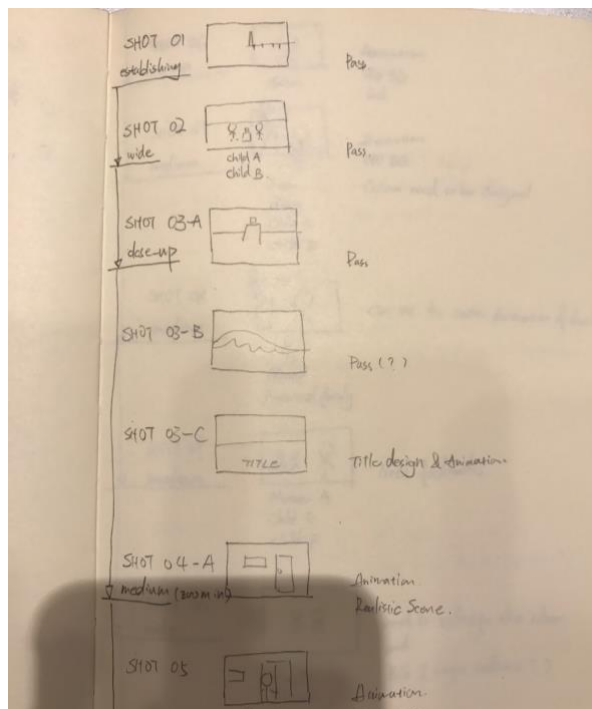 SHOT 01
establishing
Pass
SHOT 02
wide
child A
child B
Pass
SHOT 03-A
close-up
Pass
SHOT 03-B
Pass (?)
SHOT 03-C
TITLE
Title design & Animation
SHOT 04-A
medium (zoom in)
Animation
Realistic Scene.
SHOT 05
Animation.